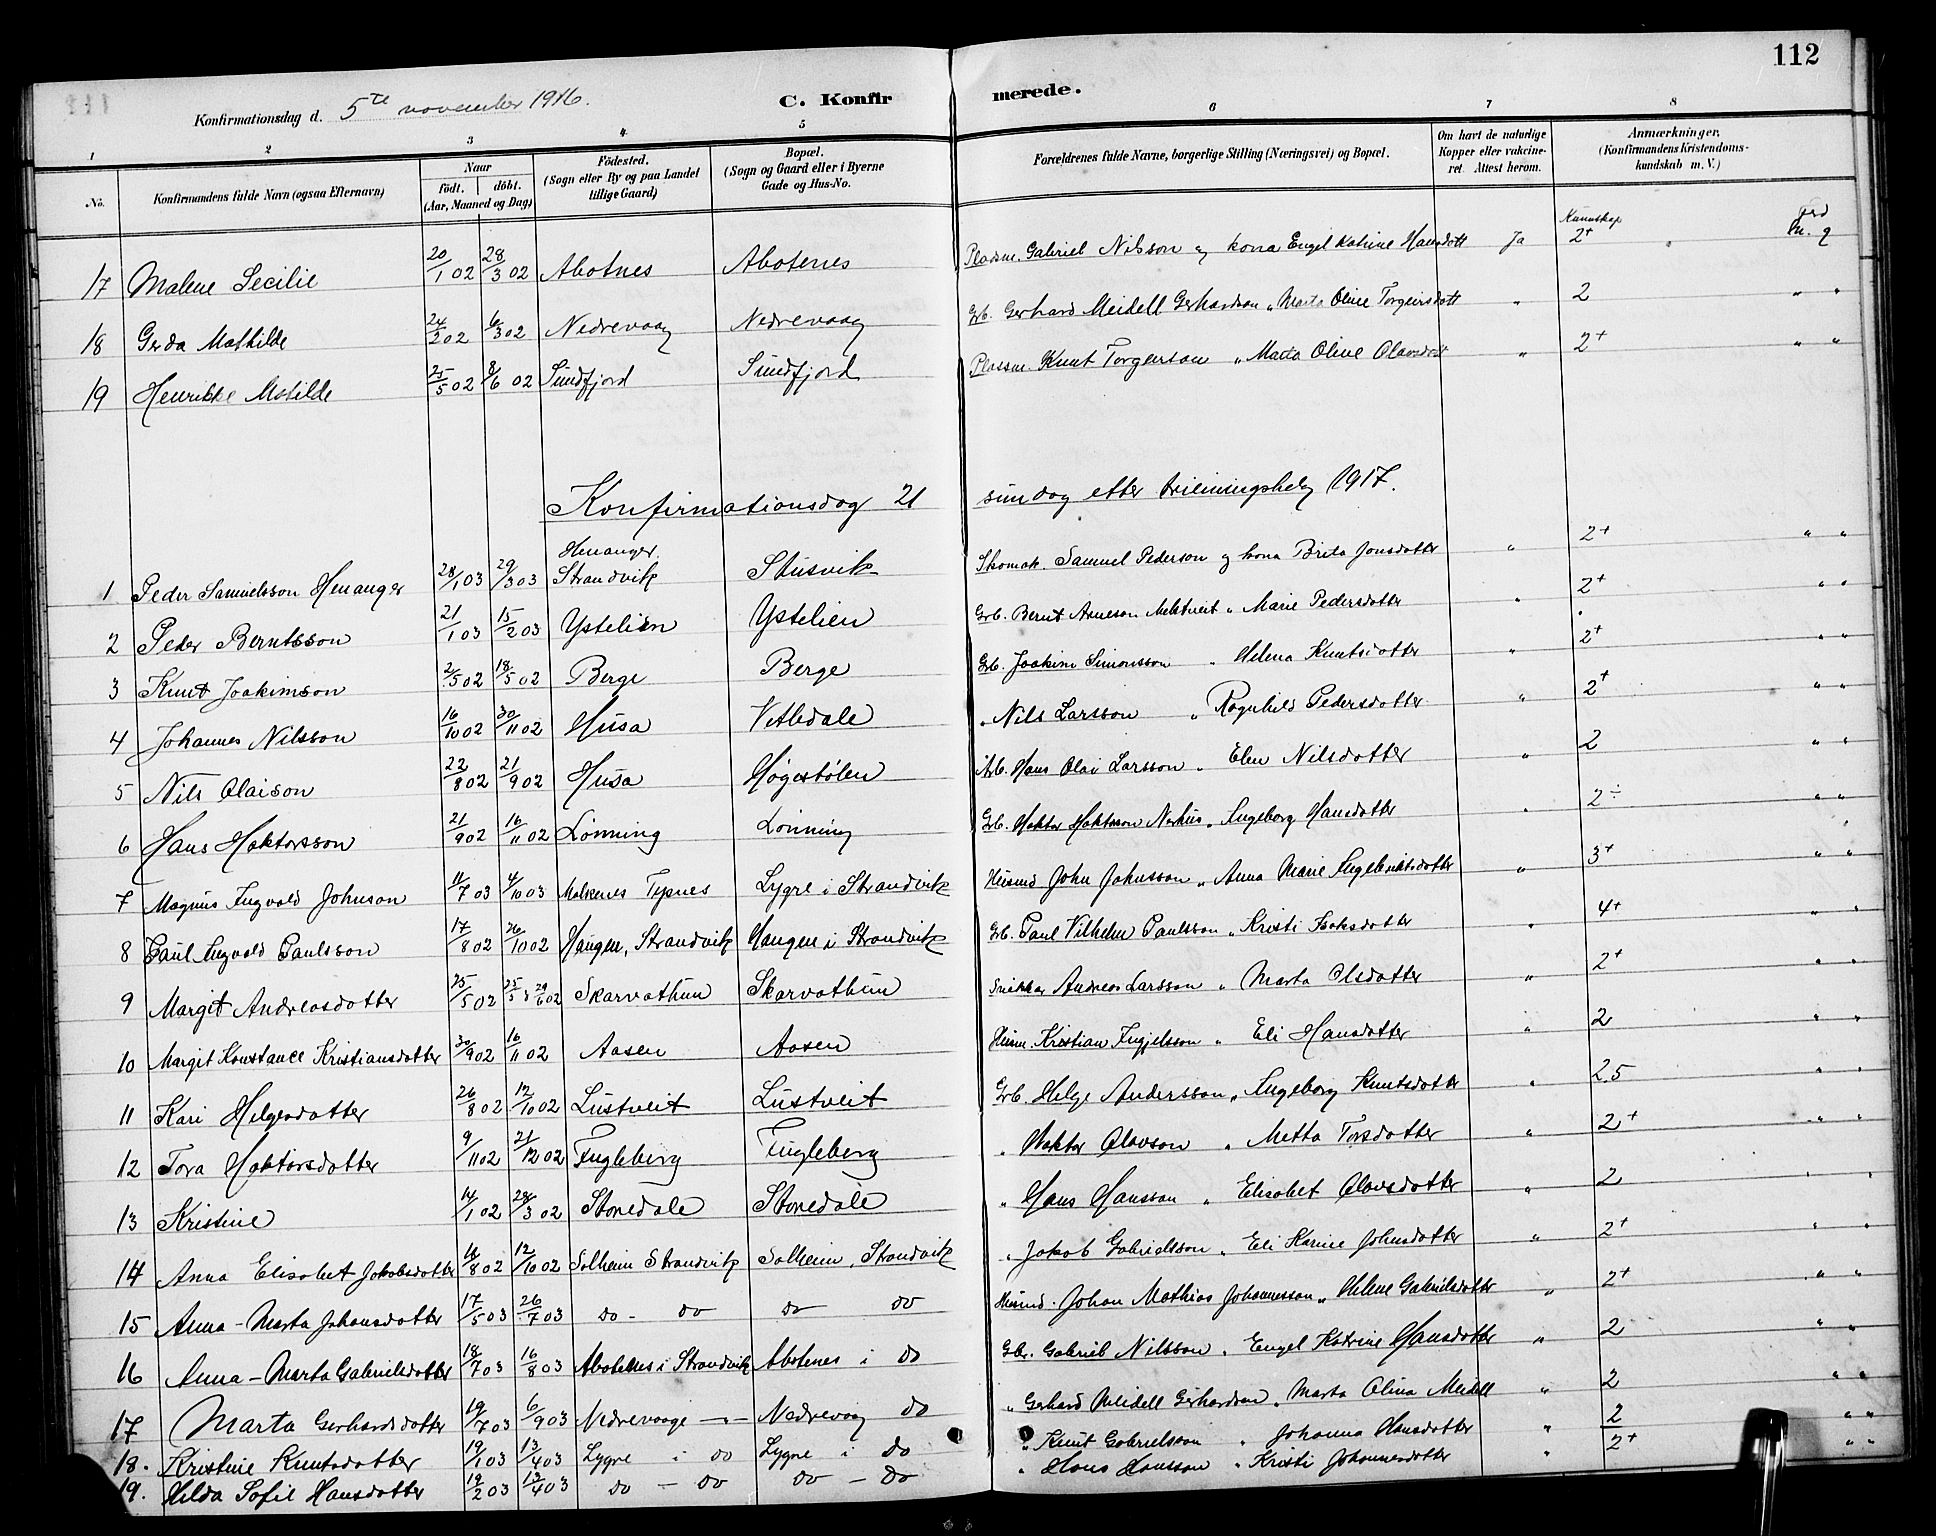 112
Konfirmationsdag d. 5te november 1916. C. Konfirmerede.
1 2 3 4 5 6 7 8
No. Konfirmandens fulde Navn (ogsaa Efternavn) Naar födt. döbt. (Aar, Maaned og Dag) Födested. (Sogn eller By og paa Landet tillige Gaard) Bopæl. (Sogn og Gaard eller i Byerne Gade og Hus-No. Forældrenes fulde Navne, borgerlige Stilling (Næringsvei) og Bopæl. Om havt de naturlige Kopper eller vakcineret. Attest herom. Anmærkninger. (Konfirmandens Kristendomskundskab m. V.)
17 Malene Secilie 20/1 02 28/3 02 Abotnes Abotenes Plassm. Gabriel Nilsson og kona Engel Katrine Hansdott Ja Kunnskap 2+
18 Gerda Mathilde 24/2 02 6/3 02 Nedrevaag Nedrevaag Grb. Gerhard Meidell Gerhardson " Marta Oline Torgeirsdott " 2 " "
19 Henrikke Matilde 25/5 02 8/6 02 Sundfjord Sundfjord Plassm. Knut Torgerson " Marta Oline Olavsdott " 2+ " "
Konfirmationsdag 21 sundag etter triiningshelg 1917.
1 Peder Samuelsson Henanger 28/1 03 29/3 03 Henanger. Strandvik Stusvik Skomak. Samuel Pederson og kona Brita Jonsdotter " 2+ " "
2 Peder Berntsson 21/1 03 15/2 03 Ystelien Ystelien Grb. Bernt Arneson Melstveit " Marie Pedersdotter " 2+ " "
3 Knut Joakimson 2/5 02 18/5 02 Berge Berge Grb. Joakim Simonsson " Helena Knutsdotter " 2+ " "
4 Johannes Nilsson 16/10 02 30/11 02 Husa Vetledale " Nils Larsson " Ragnhild Pedersdotter " 2+ " "
5 Nils Olaison 22/8 02 21/9 02 Husa Høgestølen Arb. Hans Olai Larsson " Elen Nilsdotter " 2 " "
6 Hans Haktorsson 21/9 02 16/11 02 Lønning Lønning Grb. Haktor Haktorson Nerhus " Ingeborg Hansdotter " 2÷ " "
7 Magnus Ingvald Johnson 11/7 03 4/10 03 Malkenes Tysnes Lygre i Strandvik Husmd John Johnsson " Anna Marie Ingebriktsdotter " 3+ " "
8 Paul Ingvald Paulsson 17/8 02 26/10 02 Haugen, Strandvik Haugen i Strandvik Grb. Paul Vilhelm Paulsson " Kristi Isaksdotter " 4+ " "
9 Margit Andreasdotter 25/5 02 29/6 02 Skarvathun Skarvathun Snikkar Andreas Larsson " Marta Olsdotter " 2+ " "
10 Margit Konstance Kristiansdotter 30/9 02 16/11 02 Aasen Aasen Husm. Kristian Ingjelsson " Eli Hansdotter " 2 " "
11 Kari Helgesdotter 26/8 02 12/10 02 Lustveit Lustveit Grb. Helge Andersson " Ingeborg Knutsdotter " 2.5 " "
12 Tora Haktorsdotter 9/11 02 21/12 02 Fugleberg Fugleberg " Haktor Olavson " Metta Torsdotter " 2+ " "
13 Kristine 14/1 02 28/3 02 Stonedale Stonedale " Hans Hansson " Elisabet Olavsdotter " 2 " "
14 Anna Elisabet Jakobsdotter 16/8 02 12/10 02 Solheim Strandvik Solheim, Strandvik " Jakob Gabrielsson " Eli Karine Johnsdotter " 2+ " "
15 Anna-Marta Johansdotter 17/5 03 26/7 03 do - do do - do Husmd. Johan Mathias Johannesson " Helene Gabrielsdotter " 2+ " "
16 Anna-Marta Gabrielsdotter 18/7 03 16/8 03 Abotenes i Strandvik Abotenes i do Gbr. Gabriel Nilsson " Engel Katrine Hansdotter " 2 " "
17 Marta Gerhardsdotter 19/7 03 6/9 03 Nedrevaage -"- Nedrevaag do " Gerhard Meidell Gerhardson " Marta Olina Meidell " 2 " "
18. Kristine Knutsdotter 19/1 03 13/4 03 Lygre i do Lygre i do " Knut Gabrielsson " Johanna Hansdotter " 2 " "
19. Hilda Sofie Hansdotter 19/2 03 13/4 03 do - do do - do " Hans Hansson " Kristi Johannesdotter " 2+ " "